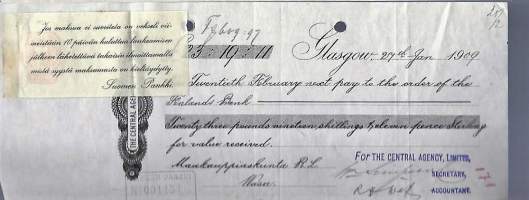 Jos maksua ei suoriteta on vekseli vii-
meistään 10 päivän kuluttua lankeamisen
jälkeen lähetettävä takaisin ilmoittamalla
mistä syystä maksamasta on kieltäydytty.
Suomen Pankki.
£23 : 19 : 11 Glasgow, 27th Jan 1909
Twentieth February next pay to the order of the
Finlands Bank
Twenty three pounds nineteen shillings & eleven pence Sterling
for value received.
Maakauppiaskunta R.L.
Wasa
THE CENTRAL AGEN
FOR THE CENTRAL AGENCY, LIMITED,
SECRETARY,
ACCOUNTANT.